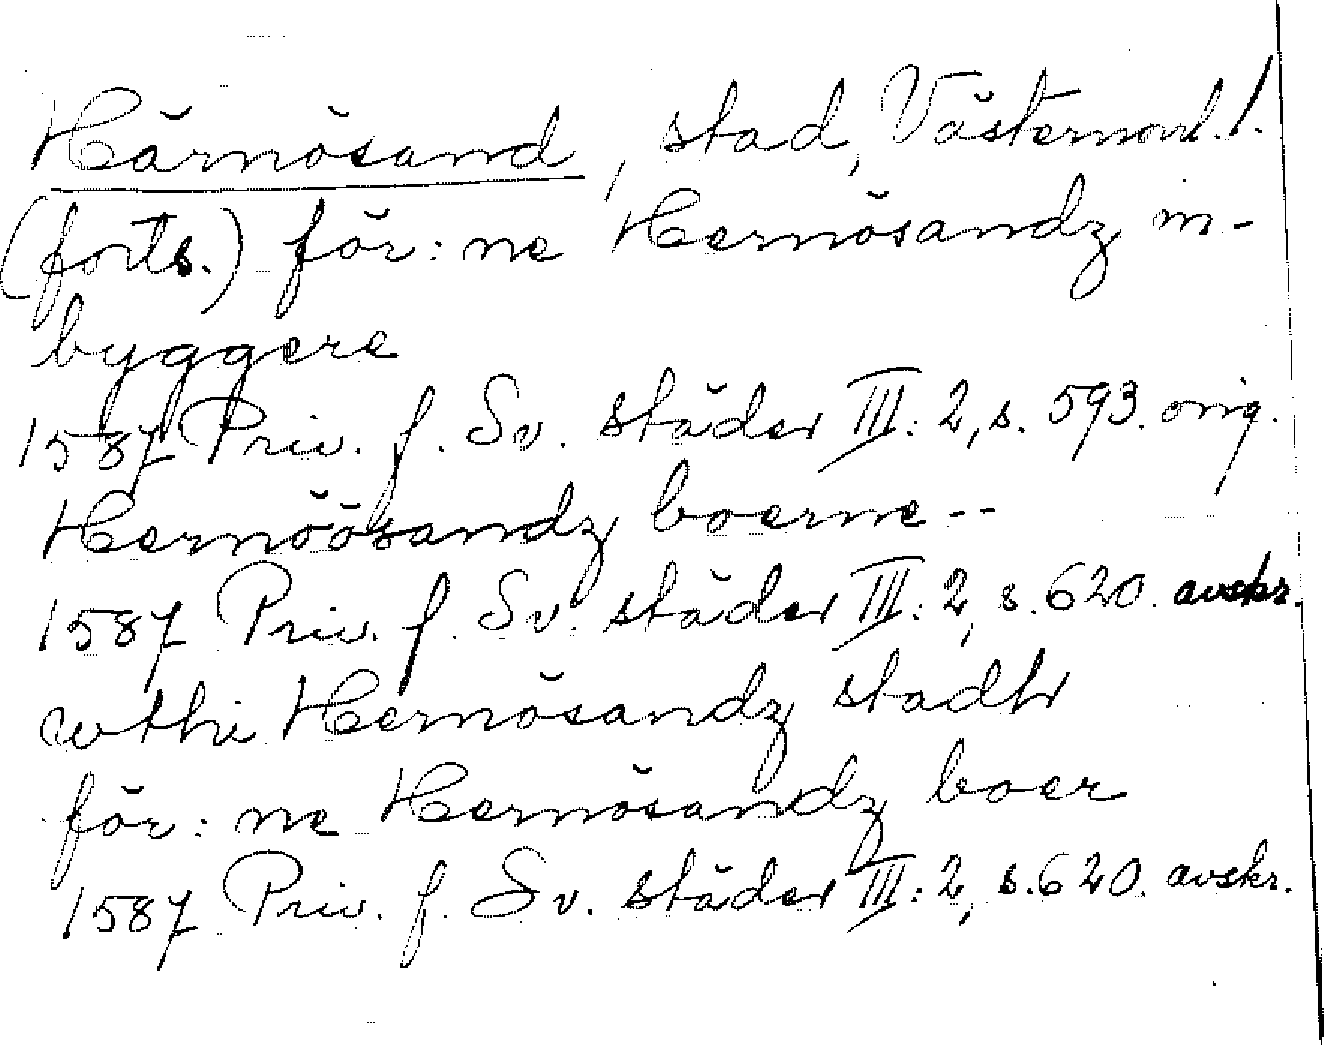 Härnösand, stad, Västernorrl. l.
(forts.) för:ne Hernösandz in-
byggere
1587 Priv. f. Sv. städer III:2, s. 593. orig.
Hernöösandz boerne--
1587 Priv. f. Sv. städer III:2, s. 620. avskr.
wthi Hernösandz stadh
för:ne Hernösandz boer
1587 Priv. f. Sv. städer III:2, s. 620. avskr.